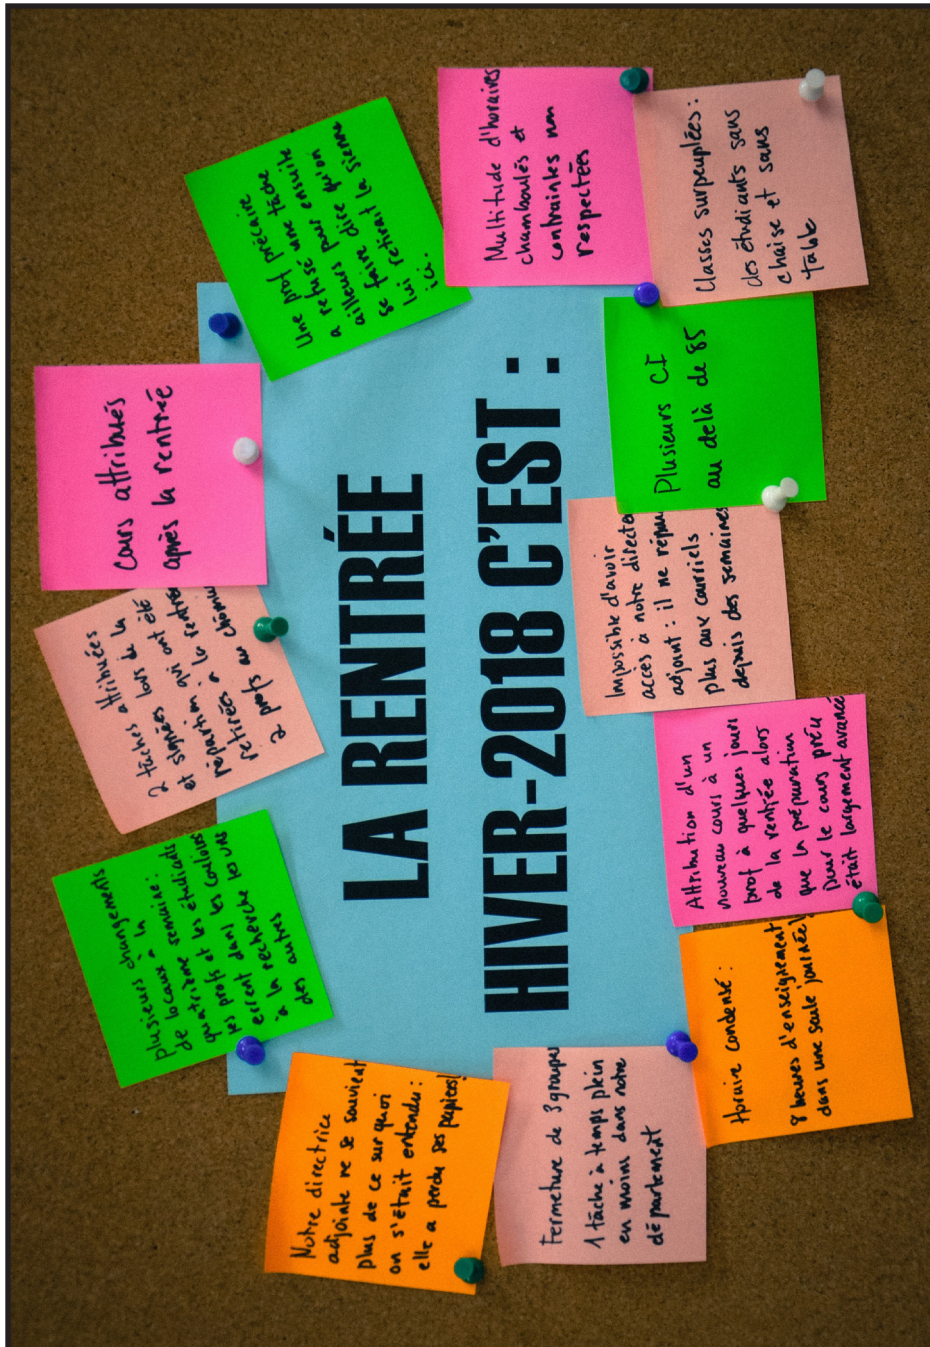 LA RENTRÉE
HIVER-2018 C'EST :
Notre directrice
adjointe ne se souvient
plus de ce sur quoi
on s'était entendu :
elle a perdu ses papiers!
plusieurs changements
de locaux à la
quatrième semaine:
les profs et les étudiants
errent dans les couloirs
à la recherche les uns
des autres
2 tâches attribuées
et signées lors de la
répartition qui ont été
retirées à la rentrée
2 profs au chômage
Cours attribués
après la rentrée
Une prof précaire
a refusé une tâche
ailleurs pour ensuite
se faire dire qu'on
lui retirait la sienne
ici.
Multitude d'horaires
chamboulés et
contraintes non
respectées
Classes surpeuplées :
des étudiants sans
chaise et sans
table
Plusieurs CI
au delà de 85
Impossible d'avoir
accès à notre
adjoint : il ne
plus aux courriels
depuis des semaines
Attribution d'un
nouveau cours à un
prof à quelques jours
de la rentrée alors
que la préparation
pour le cours
était largement avancé
Horaire condensé :
8 heures d'enseignement
dans une seule journée!
Fermeture de 3 groupes
1 tâche à temps plein
en moins dans notre
département